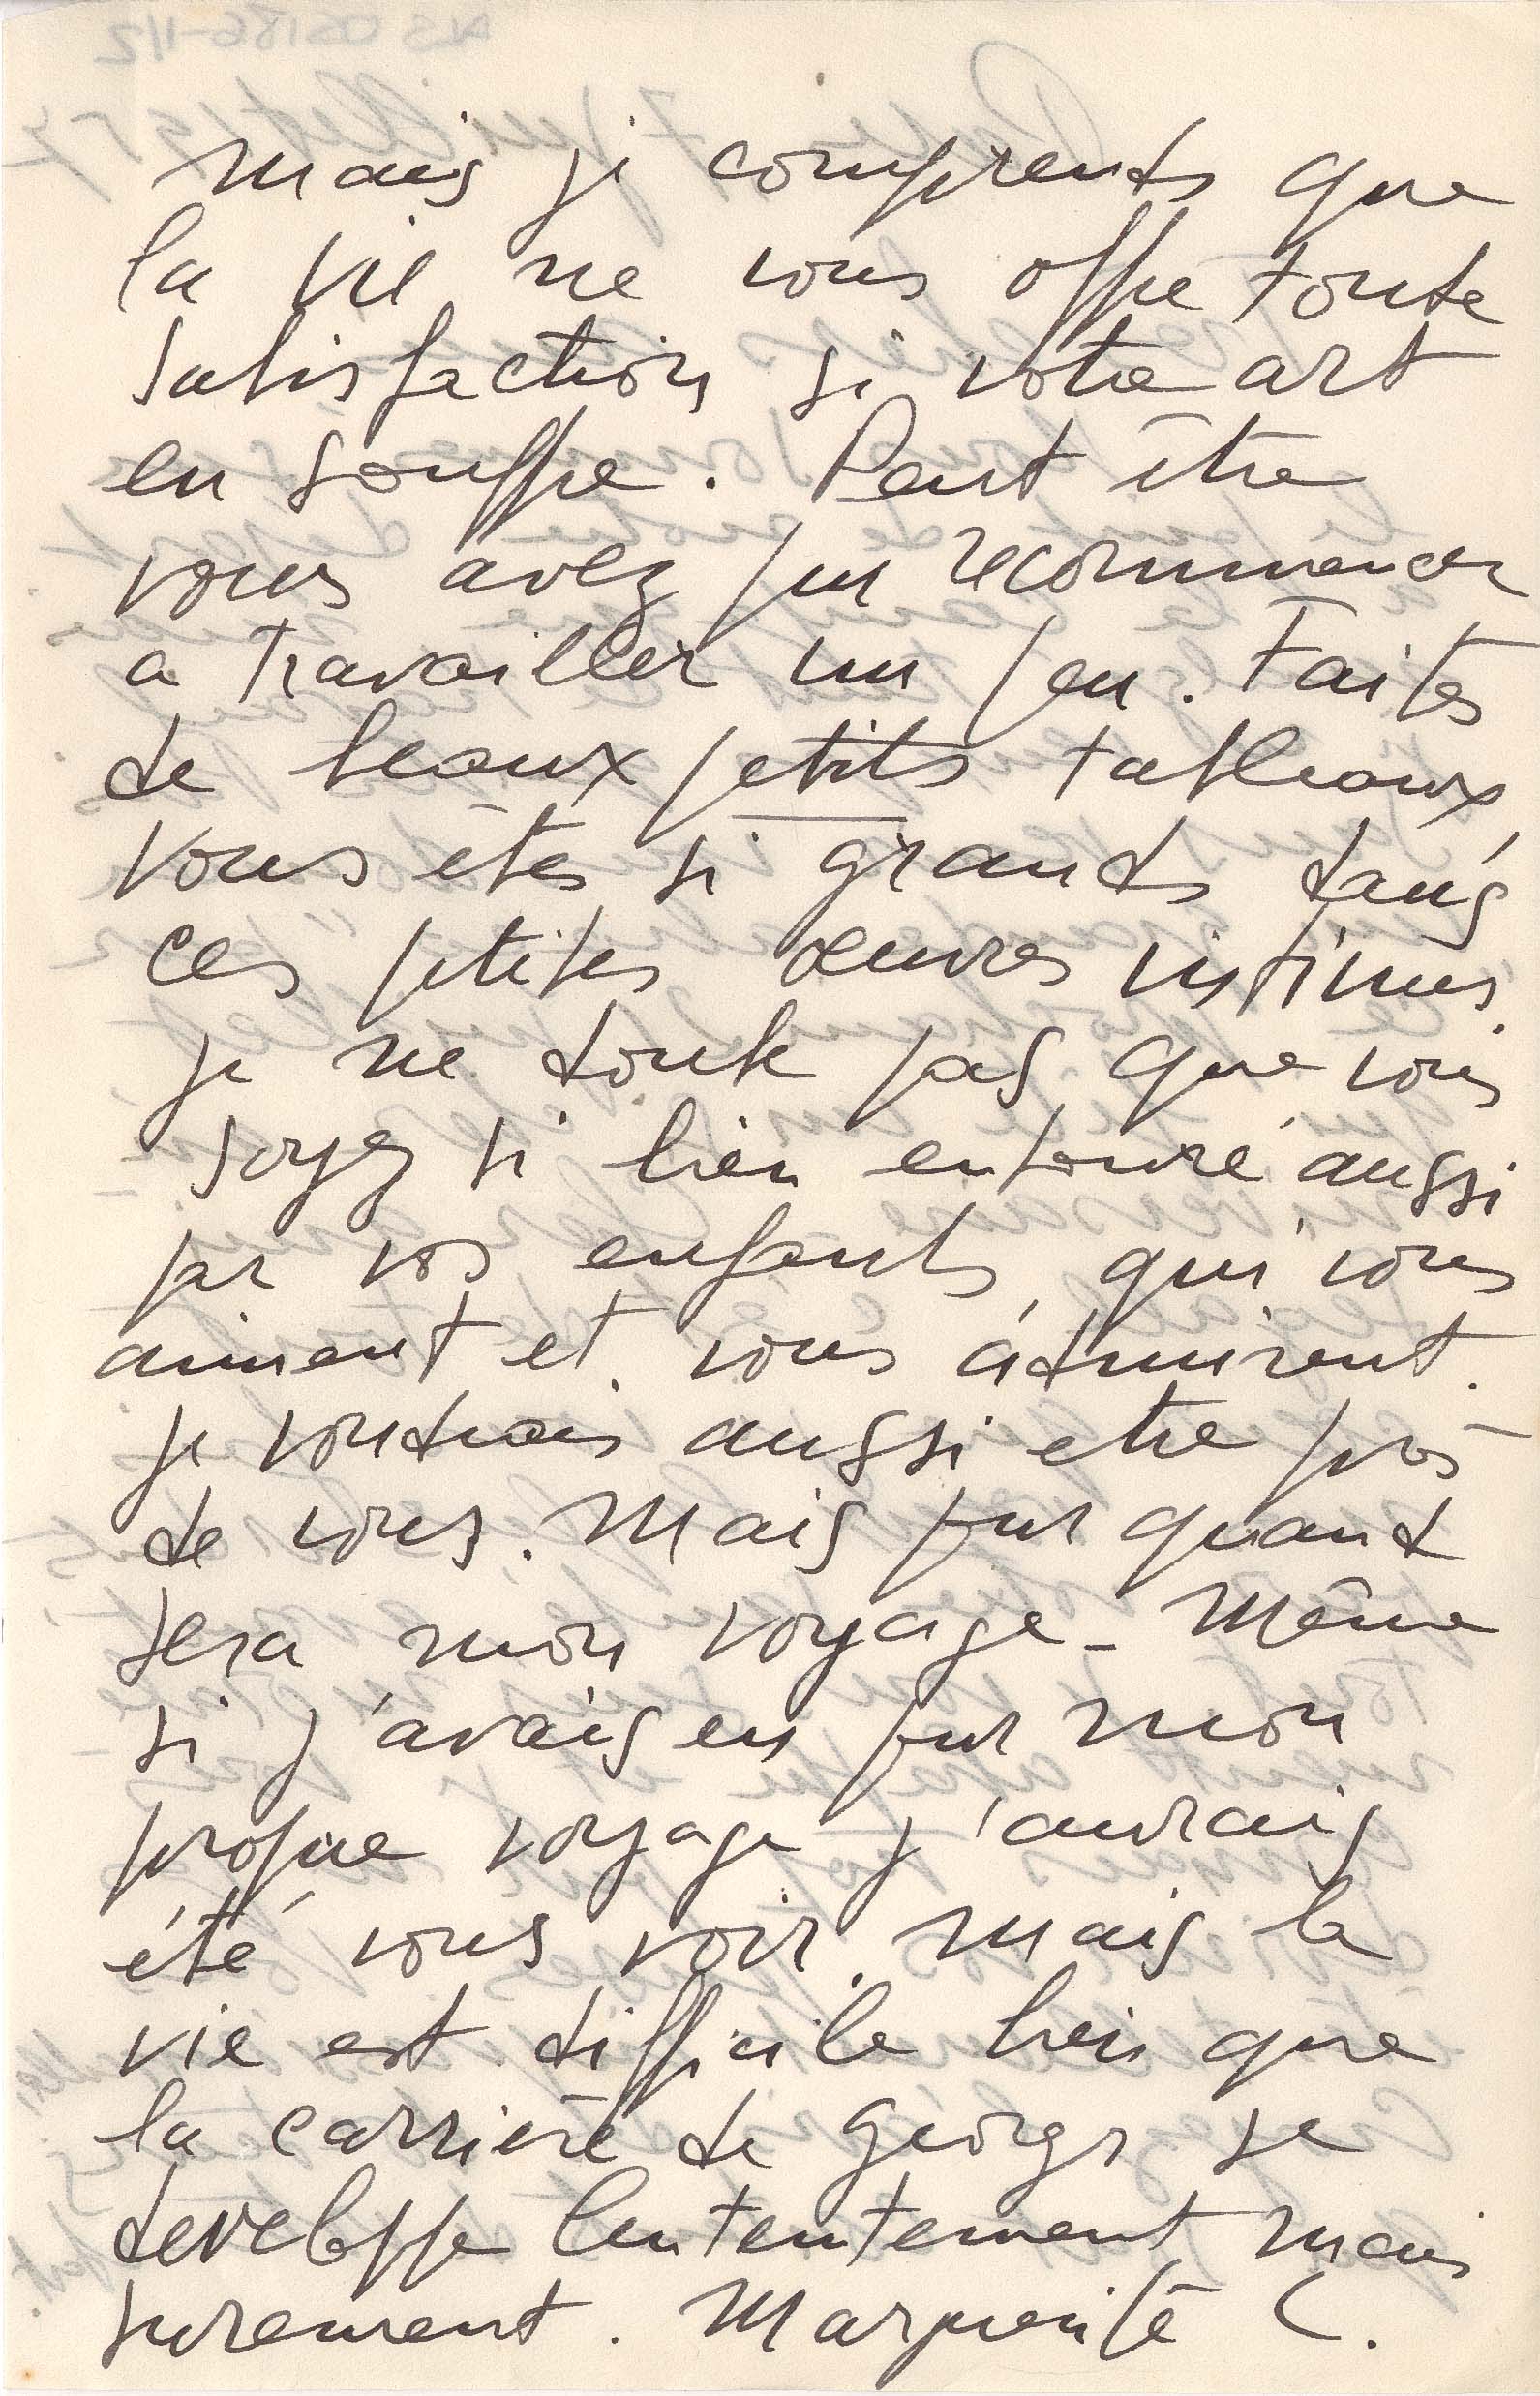 mais je comprends que
la vie ne vous offre toute
satisfaction si votre art
en souffre. Peut être
vous avez pu recommencer
a travailler un peu. Faites
de beaux petits tableaux
vous êtes si grands dans
ces petites œuvres intimes.
je ne doute pas que vous
soyez si bien entouré aussi
par vos enfants qui vous
aiment et vous admirent.
je voudrais aussi etre près
de vous. Mais pur quand
sera mon voyage - Même
si j'avais eu pur mon
propre voyage j'aurais
été vous voir, mais la
vie est difficile bien que
la carrière de Georgs se
developpe lententement mais
surement. Marguerite C.